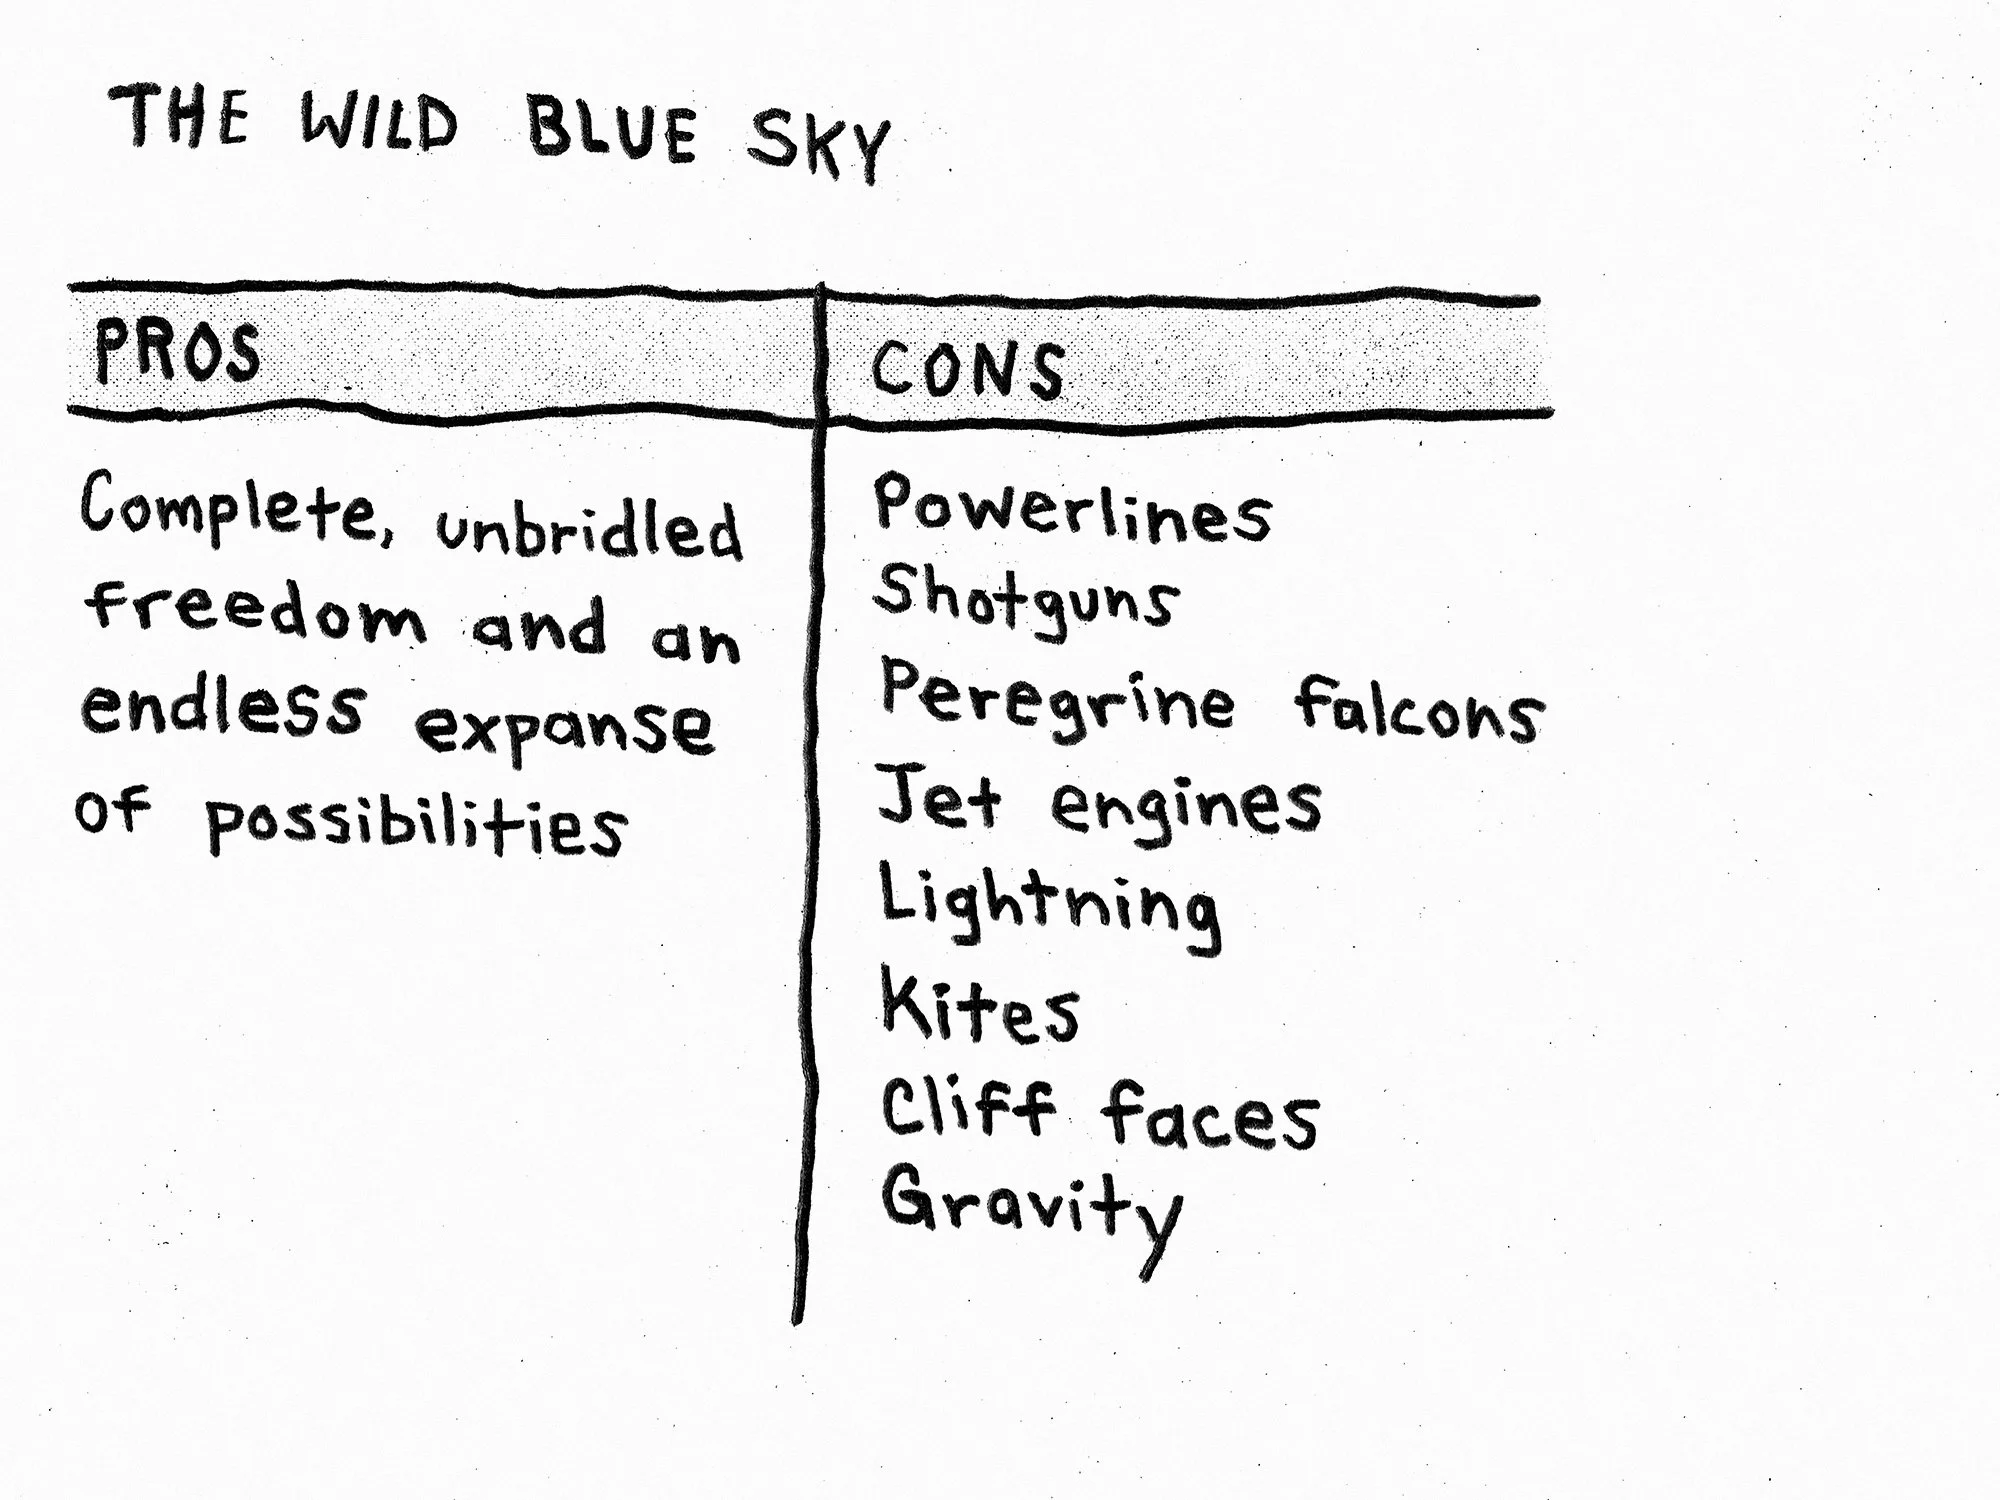 THE WILD BLUE SKY
PROS
Complete, unbridled
freedom and an
endless expanse
of possibilities
CONS
Powerlines
Shotguns
Peregrine falcons
Jet engines
Lightning
Kites
Cliff faces
Gravity